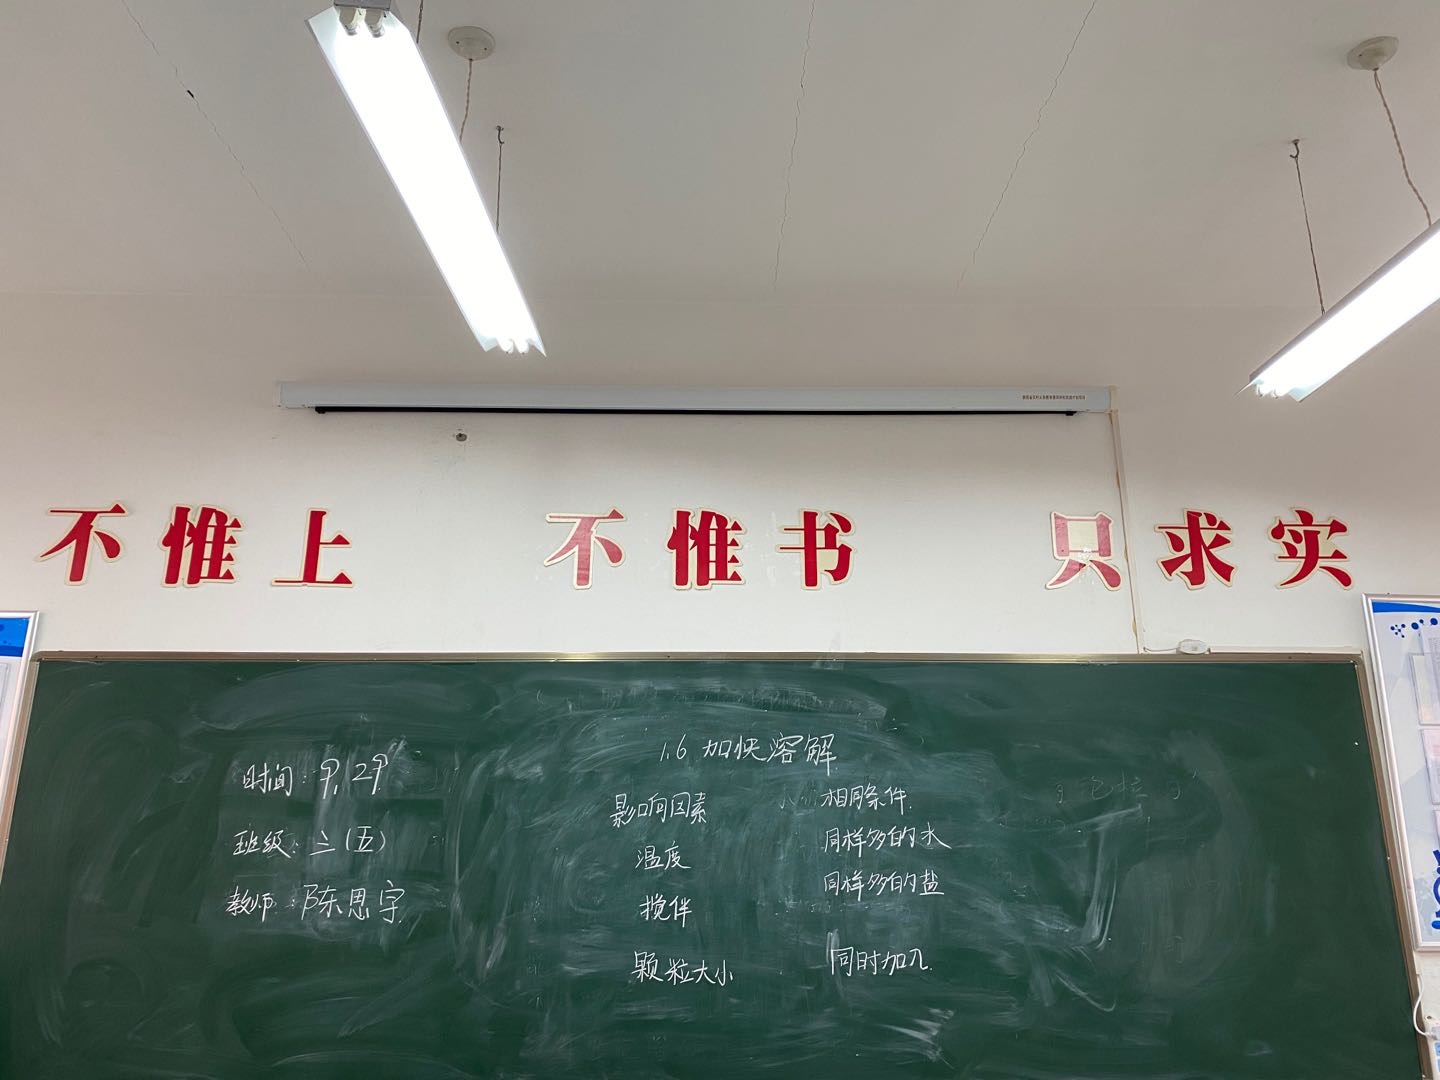 不惟上 不惟书 只求实
时间：9.29
班级：三(五)
教师：陈思宇
1.6 加快溶解
影响因素
温度
搅伴
颗粒大小
相同条件
同样多的水
同样多的盐
同时加入